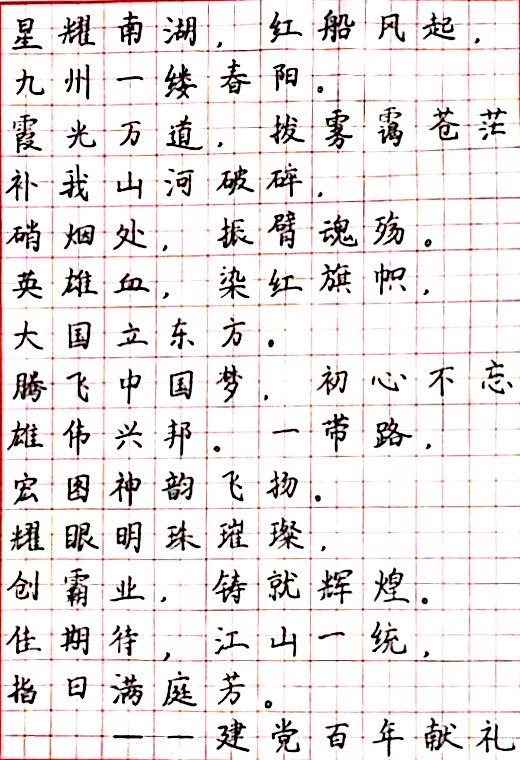 星耀南湖，红船风起，
九州一缕春阳。
霞光万道，拨雾霭苍茫
补我山河破碎，
硝烟处，振臂魂殇。
英雄血，染红旗帜，
大国立东方。
腾飞中国梦，初心不忘
雄伟兴邦。一带路，
宏图神韵飞扬。
耀眼明珠璀璨，
创霸业，铸就辉煌。
佳期待，江山一统，
指日满庭芳。
——建党百年献礼